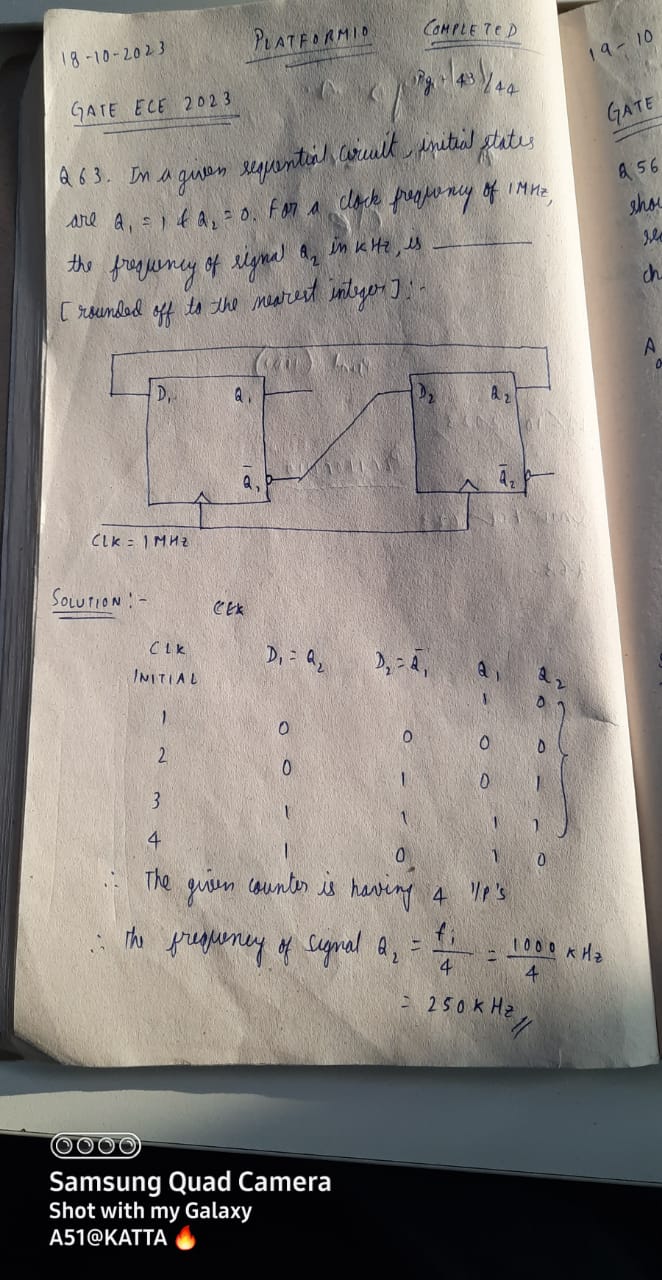 18-10-2023 PLATFORMIO COMPLETED
Pg: 43/44
GATE ECE 2023
Q63. In a given sequential circuit, initial states
are Q₁ = 1 & Q₂ = 0. For a clock frequency of 1MHz,
the frequency of signal Q₂ in kHz, is ________
[rounded off to the nearest integer]:-
D₁ Q₁ D₂ Q₂
Q̄₁ Q̄₂
CLK = 1MHz
SOLUTION:-
CLK D₁ = Q₂ D₂ = Q̄₁ Q₁ Q₂
INITIAL 1 0
1 0 0 0 0
2 0 1 0 1
3 1 1 1 1
4 1 0 1 0
∴ The given counter is having 4 I/P's
∴ The frequency of signal Q₂ = fi/4 = 1000/4 kHz
= 250 kHz //
19-10
GATE
Q56
sho
ch
A
Samsung Quad Camera
Shot with my Galaxy
A51@KATTA 🔥